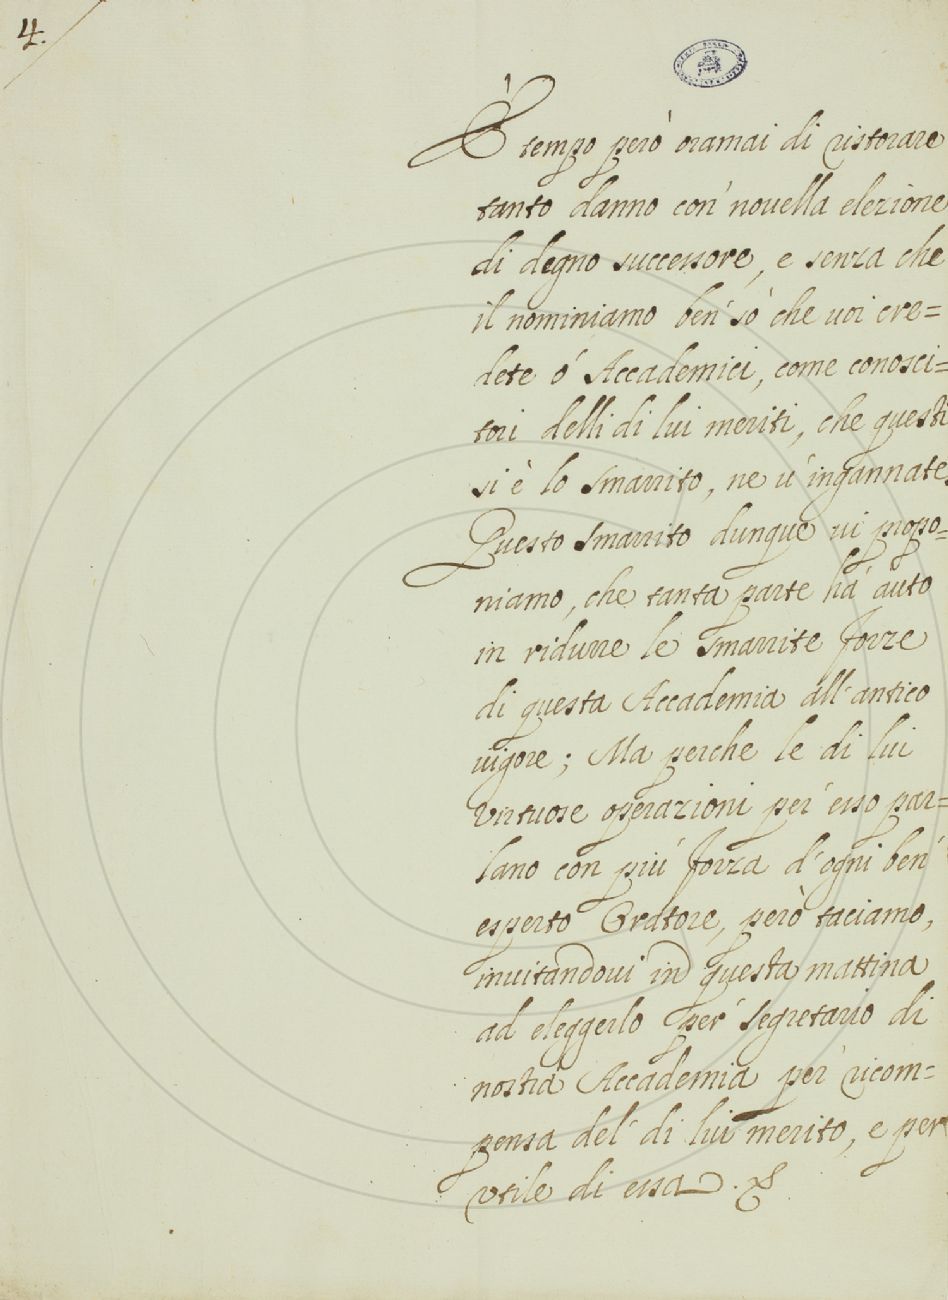 4.
È tempo però oramai di ristorare
tanto danno con' nouella elezione
di degno successore, e senza che
il nominiamo ben' sò che uoi cre=
dete ó Accademici, come conosci=
tori delli di lui meriti, che questi
si è lo Smarrito, ne u' ingannate,
Questo Smarrito dunque ui propo=
niamo, che tanta parte há auto
in ridurre le smarrite forze
di questa Accademia all' antico
uigore; Ma perche le di lui
Virtuose operazioni per' esso par=
lano con piú forza d' ogni ben'
esperto Oratore, però taciamo,
inuitandoui in questa mattina
ad eleggerlo per' Segretario di
nostra Accademia per' ricom=
pensa del' di lui merito, e per
vtile di essa.